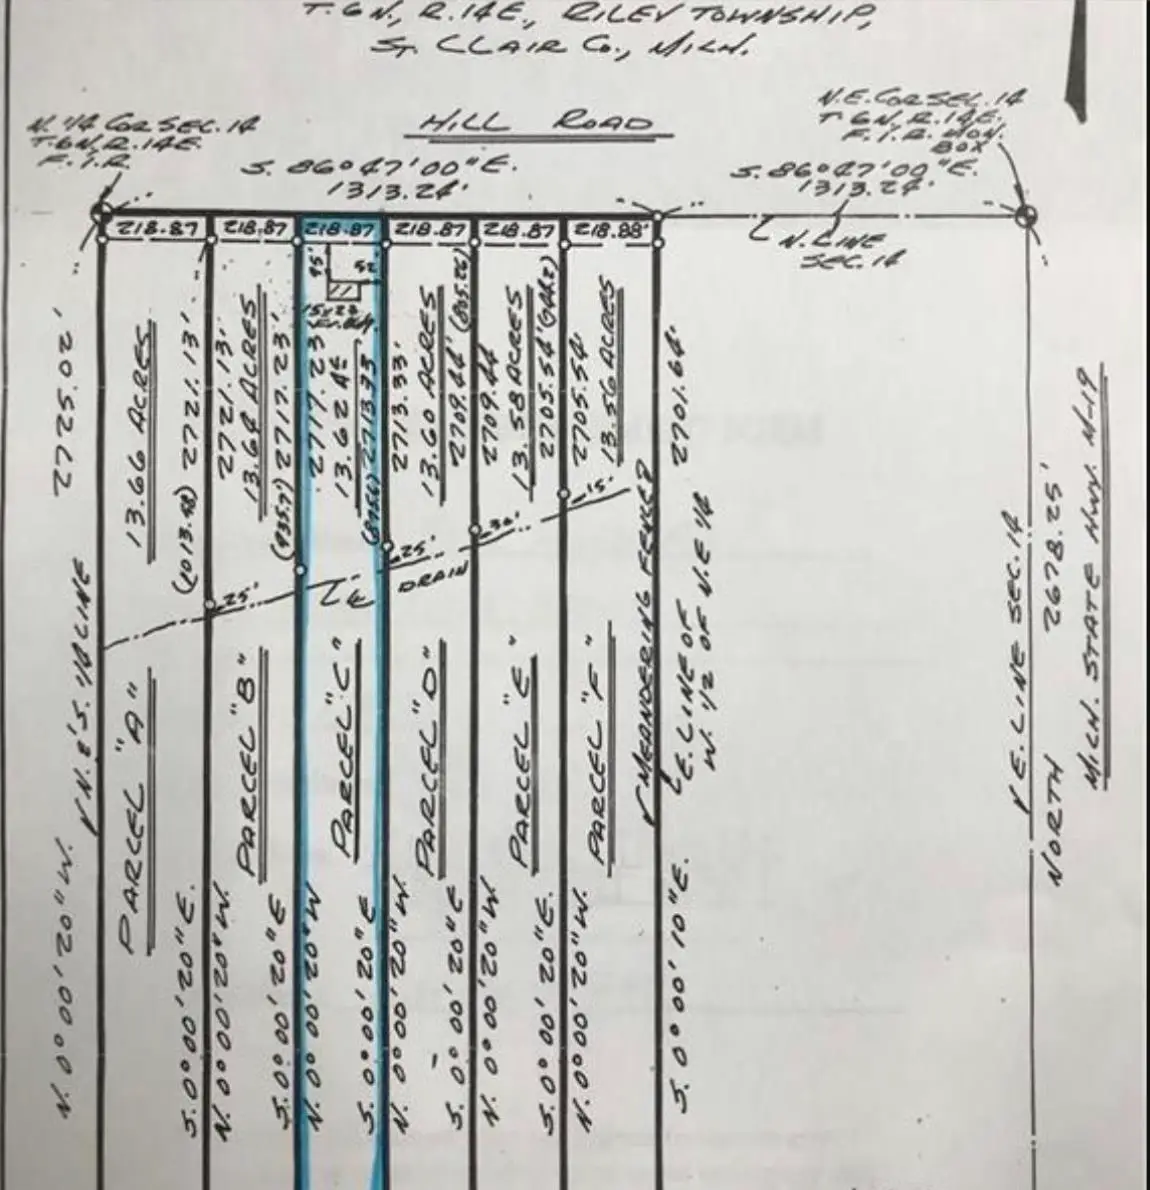 T. 6 N., R. 14 E., RILEY TOWNSHIP,
ST. CLAIR CO., MICH.
HILL ROAD
N. 1/4 COR SEC. 14
T. 6 N, R. 14 E.
F. I. R.
N.E. COR SEC. 14
T. 6 N, R. 14 E.
F. I. R. MON.
BOX
S. 86° 47' 00" E.
1313.24'
S. 86° 47' 00" E.
1313.24'
218.87
218.87
218.87
218.87
218.87
218.88'
N. LINE
SEC. 14
95'
52
2725.02'
13.66 ACRES
(1013.48) 2721.13'
2721.13'
13.64 ACRES
(935.7) 2717.23'
2717.23'
13.62 AC
2713.33
2713.33'
13.60 ACRES
2709.44'
2709.44
13.58 ACRES
2705.54'
2705.54'
13.56 ACRES
2701.64'
25'
25'
30'
15'
DRAIN
N. & S. 1/4 LINE
PARCEL "A"
PARCEL "B"
PARCEL "C"
PARCEL "D"
PARCEL "E"
PARCEL "F"
MEANDERING FENCE
E. LINE OF
W. 1/2 OF N.E 1/4
E. LINE SEC. 14
NORTH 2678.25'
MICH. STATE HWY. M-19
N. 0° 00' 20" W.
S. 0° 00' 20" E.
N. 0° 00' 20" W.
S. 0° 00' 20" E
N. 0° 00' 20" W
S. 0° 00' 20" E
N. 0° 00' 20" W.
S. 0° 00' 20" E
N. 0° 00' 20" W.
S. 0° 00' 20" E.
N. 0° 00' 20" W.
S. 0° 00' 10" E.